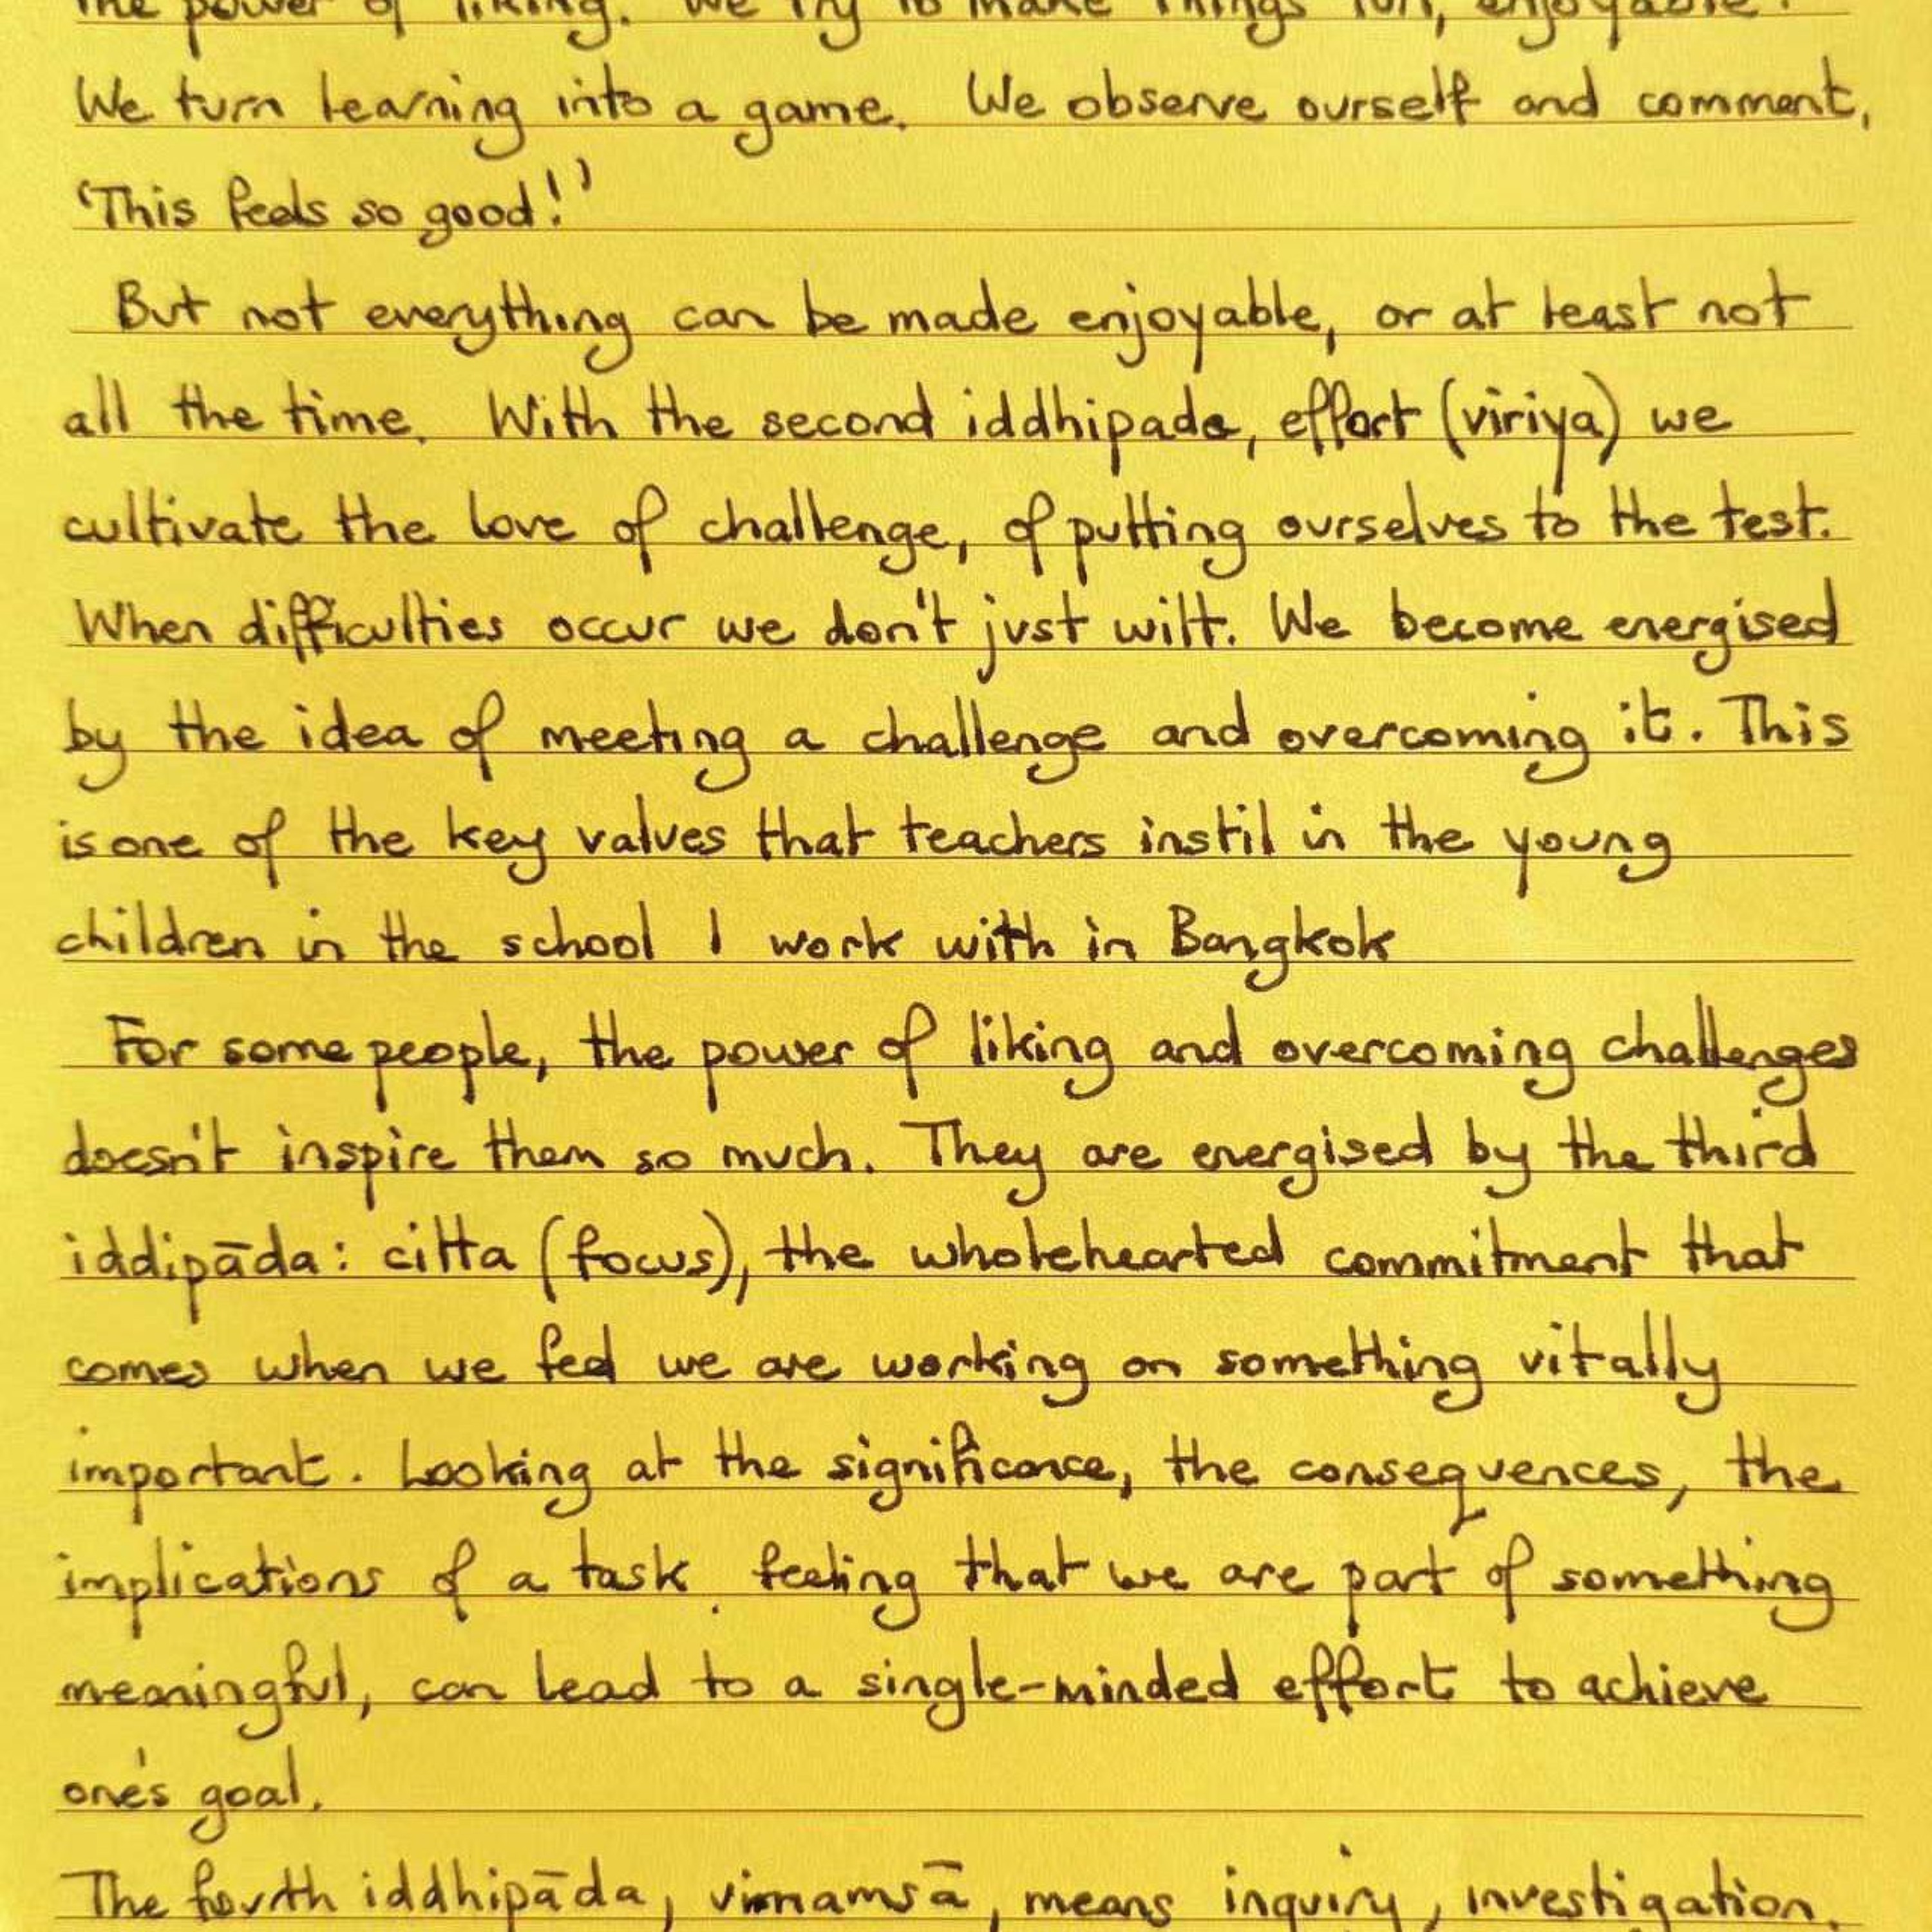 the power of liking. We try to make things fun, enjoyable.
We turn learning into a game. We observe ourself and comment,
'This feels so good!'
But not everything can be made enjoyable, or at least not
all the time. With the second iddhipada, effort (viriya) we
cultivate the love of challenge, of putting ourselves to the test.
When difficulties occur we don't just wilt. We become energised
by the idea of meeting a challenge and overcoming it. This
is one of the key values that teachers instil in the young
children in the school I work with in Bangkok
For some people, the power of liking and overcoming challenges
doesn't inspire them so much. They are energised by the third
iddipāda: citta (focus), the wholehearted commitment that
comes when we feel we are working on something vitally
important. Looking at the significance, the consequences, the
implications of a task, feeling that we are part of something
meaningful, can lead to a single-minded effort to achieve
one's goal.
The fourth iddhipāda, vimamsā, means inquiry, investigation,